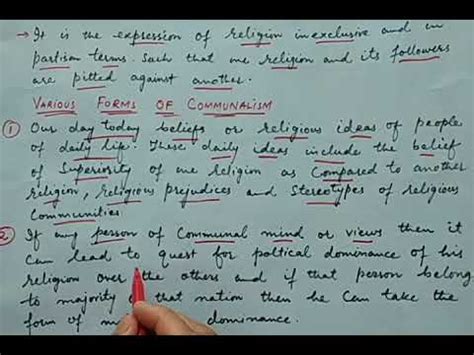 → It is the expression of religion in exclusive and in
partisan terms. Such that one religion and its followers
are pitted against another.
VARIOUS FORMS OF COMMUNALISM
① Our day today beliefs or religious ideas of people
of daily life. These daily ideas include the belief
of Superiority of one religion as Compared to another
religion, religious prejudices and Stereotypes of religious
Communities.
2. If any person of Communal mind or views then it
can lead to quest for poltical dominance of his
religion over the others and if that person belong
to majority that nation then he Can take the
form of dominance.